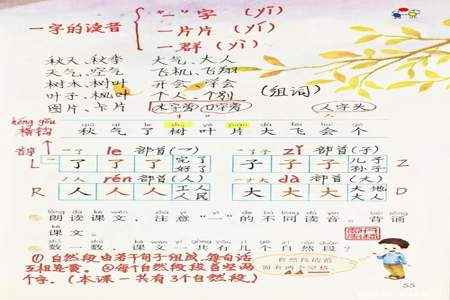 一字的读音
"一"字 (yī)
一片片 (yí)
一群 (yì)
秋天、秋季 大气、大人
天气、空气 飞机、飞翔
树木、树叶 开会、学会
叶子、枫叶 个人、个别
(组词)
图片、卡片 木字旁 口字旁 人字头
héng gōu
横钩
秋 气 了 树 叶 片 大 飞 会 个
首字 le 部首(一) zǐ 部首(子)
L 了 了 了 完了 好了 子 子 子 儿子 孙子 Z
rén 部首(人) dà 部首(大)
R 人 人 人 工人 人民 大 大 大 大地 大人 D
朗读课文,注意"一"的不同读音。背诵
课文。
数一数,课文一共有几个自然段?
① 自然段由若干句子组成,每句话
互相连贯。②每个自然段段首空两
个字。(本课一共有3个自然段)
自然段的前
面有两个空格
55